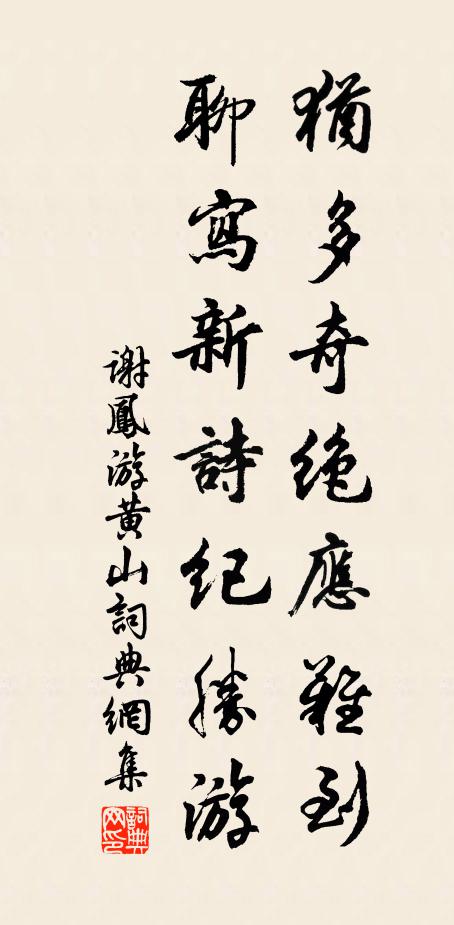 猶多奇絶應難到
聊寫新詩紀勝游
謝鳳游黄山詞典網集
詞典網印